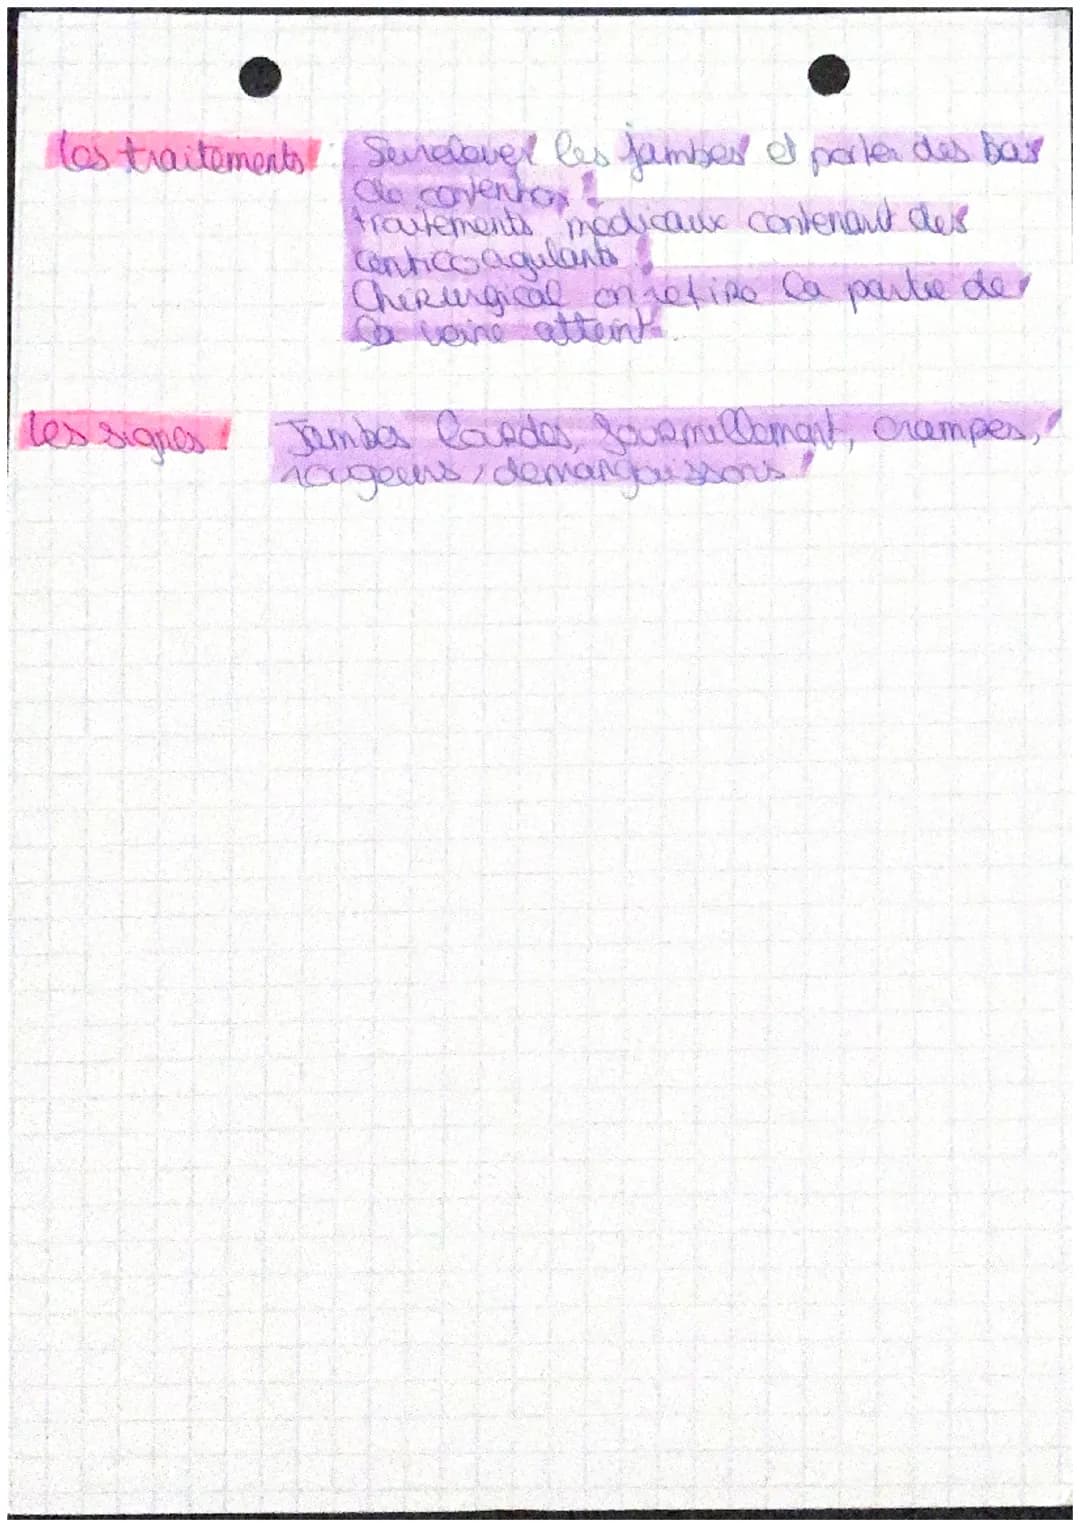 les traitements Surelever les jambes et porter des bas
de contention
traitements medicaux contenant des
anticoagulants
Chirurgical on retire la partie de
la veine atteint
les signes Jambes lourdes, fourmillement, crampes,
rougeurs, demangaissons